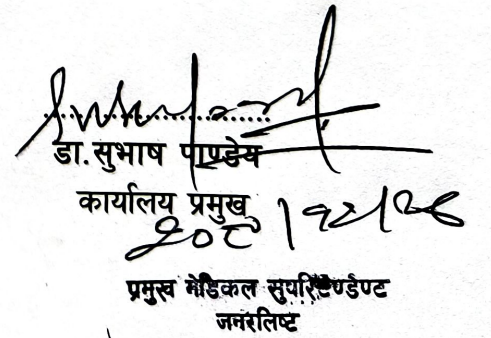 डा. सुभाष पाण्डेय
कार्यालय प्रमुख
प्रमुख मेडिकल सुपरिटेण्डेण्ट
जनरलिष्ट